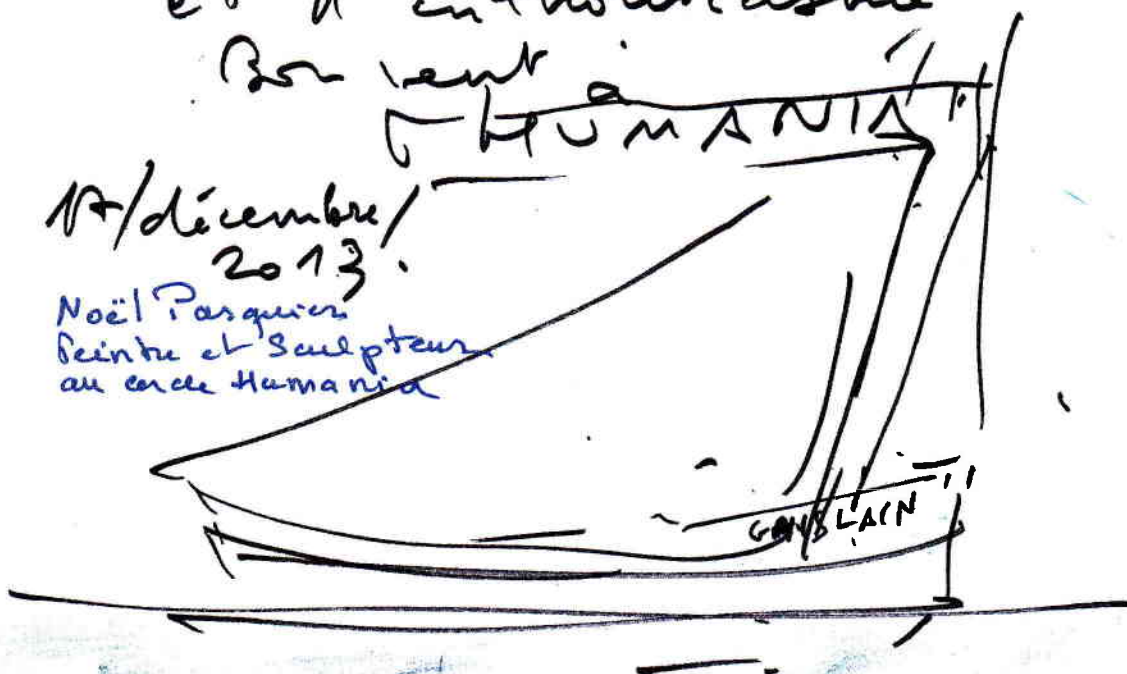 et d'enthousiasme
Bon vent à
HUMANIA
17/décembre/
2013.
Noël Pasquier
Peintre et Sculpteur
au cercle Humania